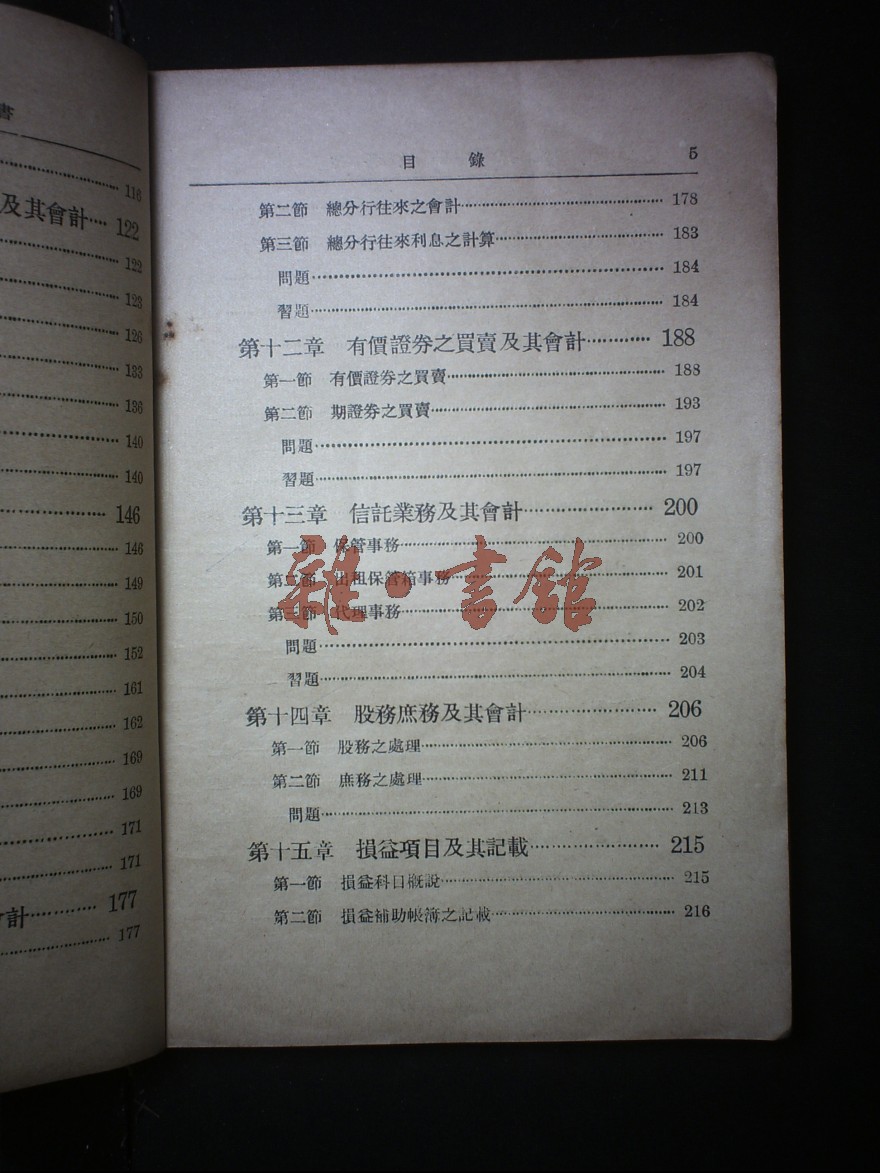 書
116
及其會計…… 122
122
123
126
133
136
140
140
146
146
149
150
152
161
162
169
169
171
171
計………… 177
177
目錄 5
第二節 總分行往來之會計……………… 178
第三節 總分行往來利息之計算……………… 183
問題……………… 184
習題……………… 184
第十二章 有價證券之買賣及其會計………… 188
第一節 有價證券之買賣……………… 188
第二節 期證券之買賣……………… 193
問題……………… 197
習題……………… 197
第十三章 信託業務及其會計……………… 200
第一節 保管事務……………… 200
第二節 出租保管箱事務……………… 201
第三節 代理事務……………… 202
問題……………… 203
習題……………… 204
第十四章 股務庶務及其會計……………… 206
第一節 股務之處理……………… 206
第二節 庶務之處理……………… 211
問題……………… 213
第十五章 損益項目及其記載……………… 215
第一節 損益科目概說……………… 215
第二節 損益補助帳簿之記載……………… 216
雜·書館